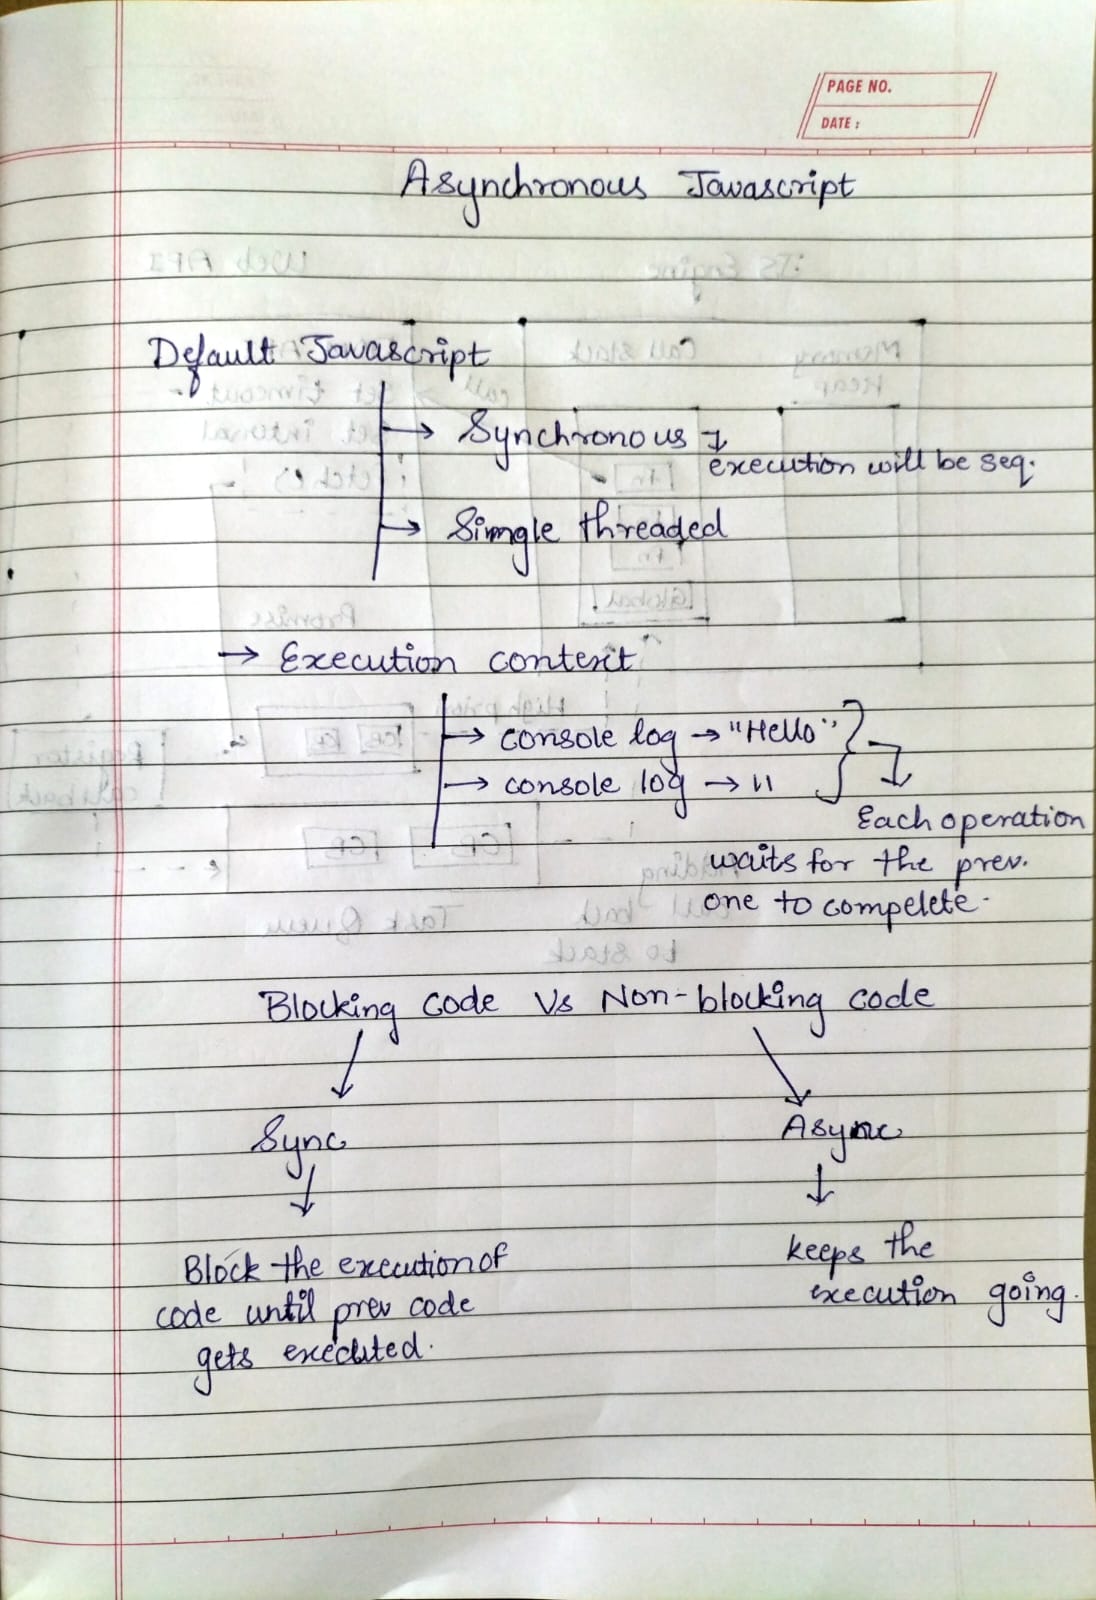 PAGE NO.
DATE :
Asynchronous Javascript
Default Javascript
→ Synchronous ↴
execution will be seq.
→ Single threaded
→ Execution context
→ console log → "Hello"
→ console log → 11
Each operation
waits for the prev.
one to compelete.
Blocking code Vs Non-blocking code
Sync
Async
Block the execution of
code until prev code
gets executed.
keeps the
execution going.